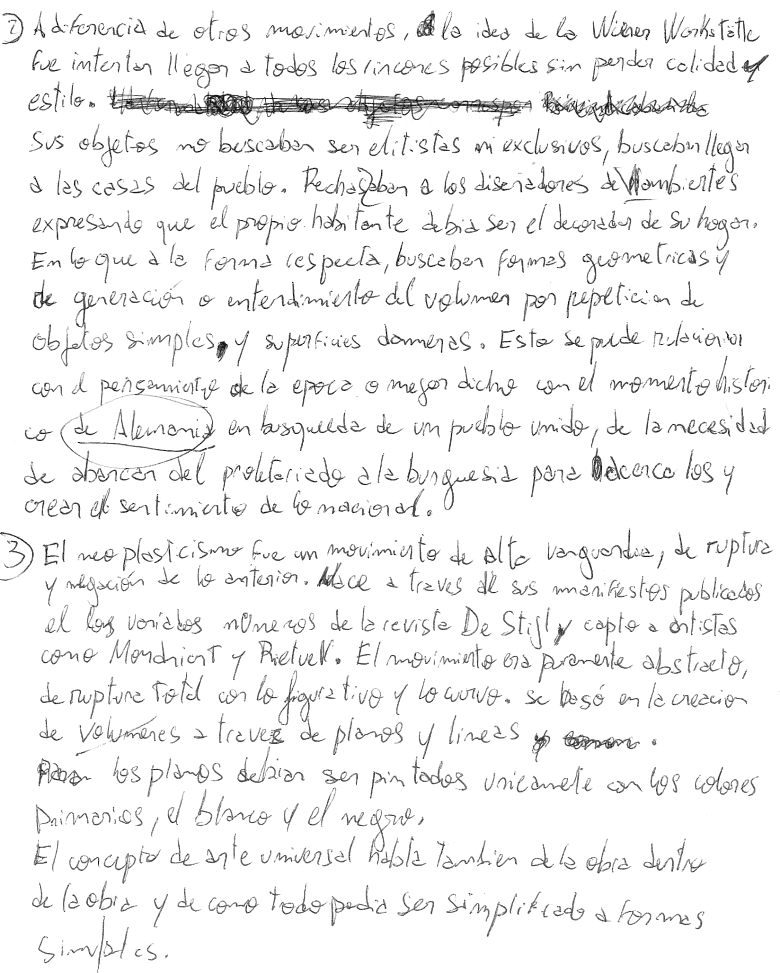 2) A diferencia de otros movimientos, la idea de la Wiener Workstatte
fue intentar llegar a todos los rincones posibles sin perder calidad y
estilo.
Sus objetos no buscaban ser elitistas ni exclusivos, buscaban llegar
a las casas del pueblo. Rechazaban a los diseñadores de ambientes
expresando que el propio habitante debia ser el decorador de su hogar.
En lo que a la forma respecta, buscaban formas geometricas y
de generación o entendimiento del volumen por repeticion de
objetos simples, y superficies dameras. Esto se puede relacionar
con el pensamiento de la epoca o mejor dicho con el momento histori
co de Alemania en busqueda de un pueblo unido, de la necesidad
de abarcar del proletariado a la burguesia para acercalos y
crear el sentimiento de lo nacional.
3) El neoplasticismo fue un movimiento de alta vanguardia, de ruptura
y negación de lo anterior. Nace a traves de sus manifiestos publicados
el los variados números de la revista De Stijl y capto a artistas
como Mondriant y Rietvelt. El movimiento era puramente abstracto,
de ruptura total con lo figurativo y lo curvo. se basó en la creacion
de volúmenes a travez de planos y lineas.
los planos debian ser pintados unicamete con los colores
primarios, el blanco y el negro.
El concepto de arte universal habla tambien de la obra dentro
de la obra y de como todo podia ser simplificado a formas
simples.